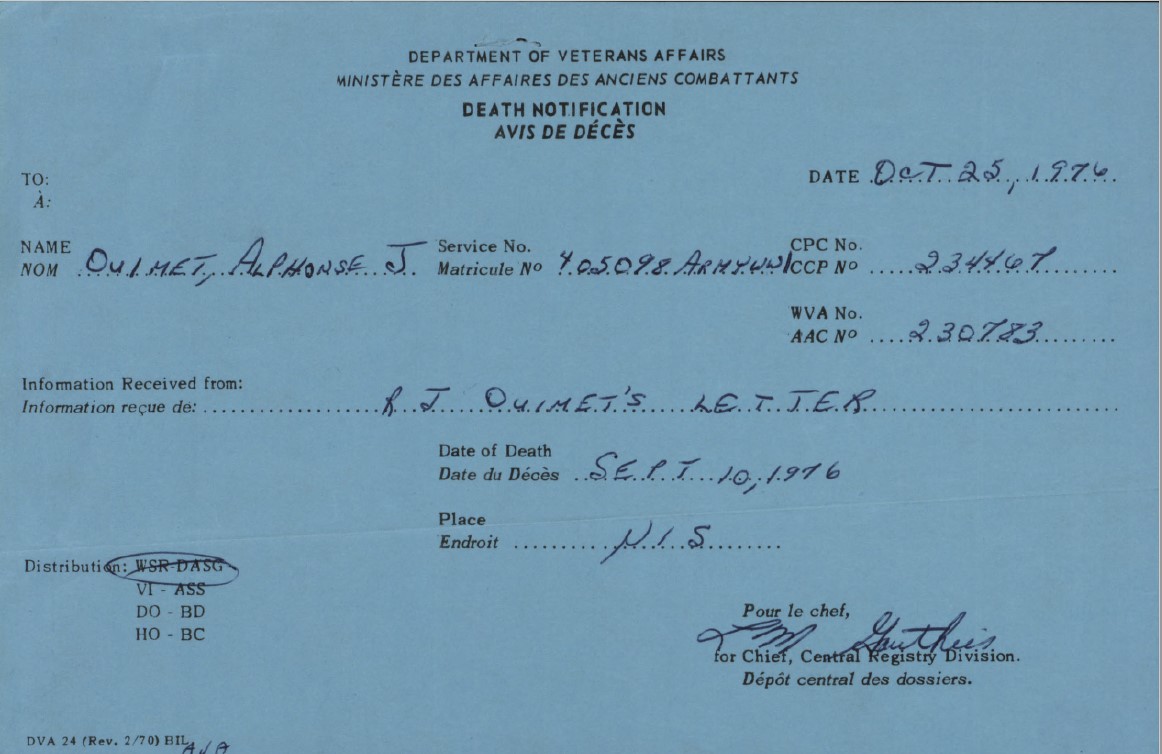 DEPARTMENT OF VETERANS AFFAIRS
MINISTÈRE DES AFFAIRES DES ANCIENS COMBATTANTS
DEATH NOTIFICATION
AVIS DE DÉCÈS
TO:
À:
DATE OCT 25, 1976
NAME
NOM OUIMET, ALPHONSE J
Service No.
Matricule Nº 405098 ARMY WW1
CPC No.
CCP Nº 234467
WVA No.
AAC Nº 230783
Information Received from:
Information reçue de: R J OUIMET'S LETTER
Date of Death
Date du Décès SEPT 10, 1976
Place
Endroit N.I.S
Distribution: WSR-DASG
VI - ASS
DO - BD
HO - BC
Pour le chef,
Gauthier
for Chief, Central Registry Division.
Dépôt central des dossiers.
DVA 24 (Rev. 2/70) BIL